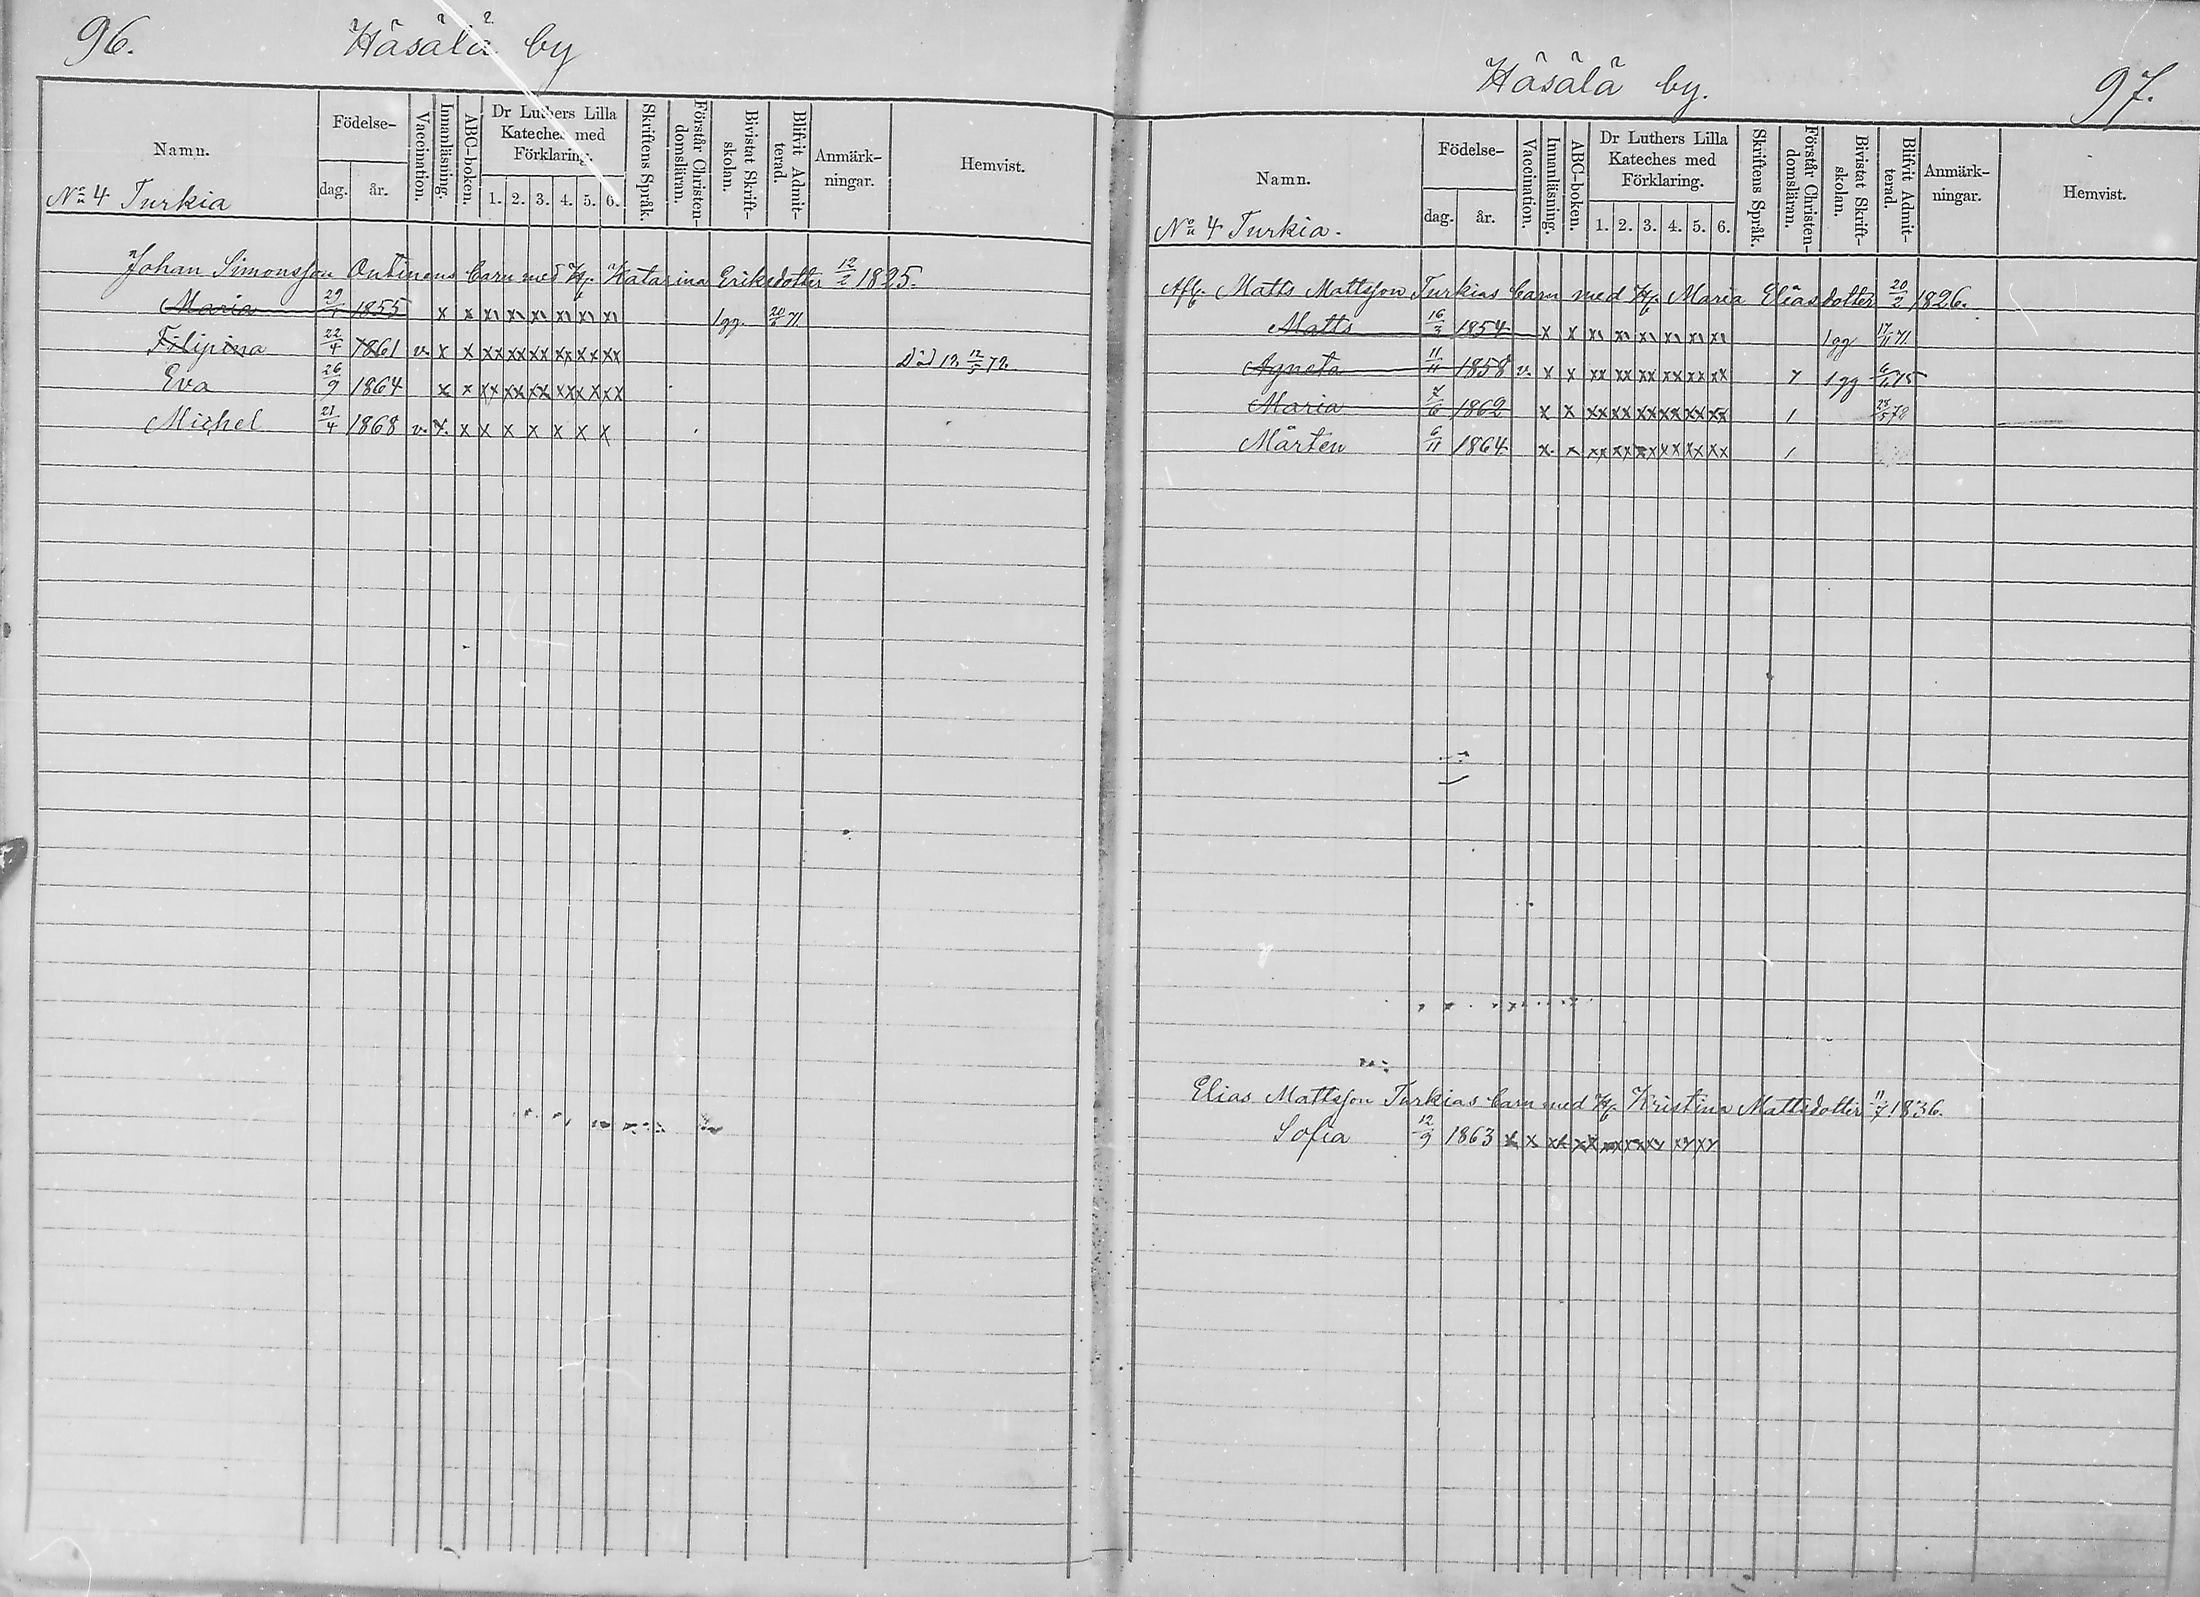 96. Häsälä by
Namn. Födelse- dag. år. Vaccination. Innanläsning. ABC-boken. Dr Luthers Lilla Kateches med Förklaring. 1. 2. 3. 4. 5. 6. Skriftens Språk. Förstår Christen-domsläran. Bivistat Skrift-skolan. Blifvit Admit-terad. Anmärk-ningar. Hemvist.
No 4 Turkia
Johan Simonsson Ontinens barn med H. Katarina Eriksdotter 12/2 1825.
Maria 29/1 1855 x x xı xı xı xı xı xı 1 gg. 20/6 71
Filipina 22/4 1861 v. x x xx xx xx xx xx xx Död 12/5 72.
Eva 26/9 1864 x x xx xx xx xx xx xx
Michel 21/4 1868 v. x. x x x x x x x
Häsälä by. 97.
Namn. Födelse- dag. år. Vaccination. Innanläsning. ABC-boken. Dr Luthers Lilla Kateches med Förklaring. 1. 2. 3. 4. 5. 6. Skriftens Språk. Förstår Christen-domsläran. Bivistat Skrift-skolan. Blifvit Admit-terad. Anmärk-ningar. Hemvist.
No 4 Turkia.
Afl. Matts Mattsson Turkias barn med H. Maria Eliasdotter 20/2 1826.
Matts 16/3 1854 x x xı xı xı xı xı xı 1 gg 17/11 71
Agneta 11/11 1858 v. x x xx xx xx xx xx xx 1 gg 6/6 75
Maria 7/6 1862 x x xx xx xx xx xx xx 1 28/5 78
Mårten 6/11 1864 x. x xx xx xx xx xx xx 1
Elias Mattsson Turkias barn med H. Kristina Mattsdotter 11/7 1836.
Sofia 12/9 1863 x x xx xx xx xx xx xx xx